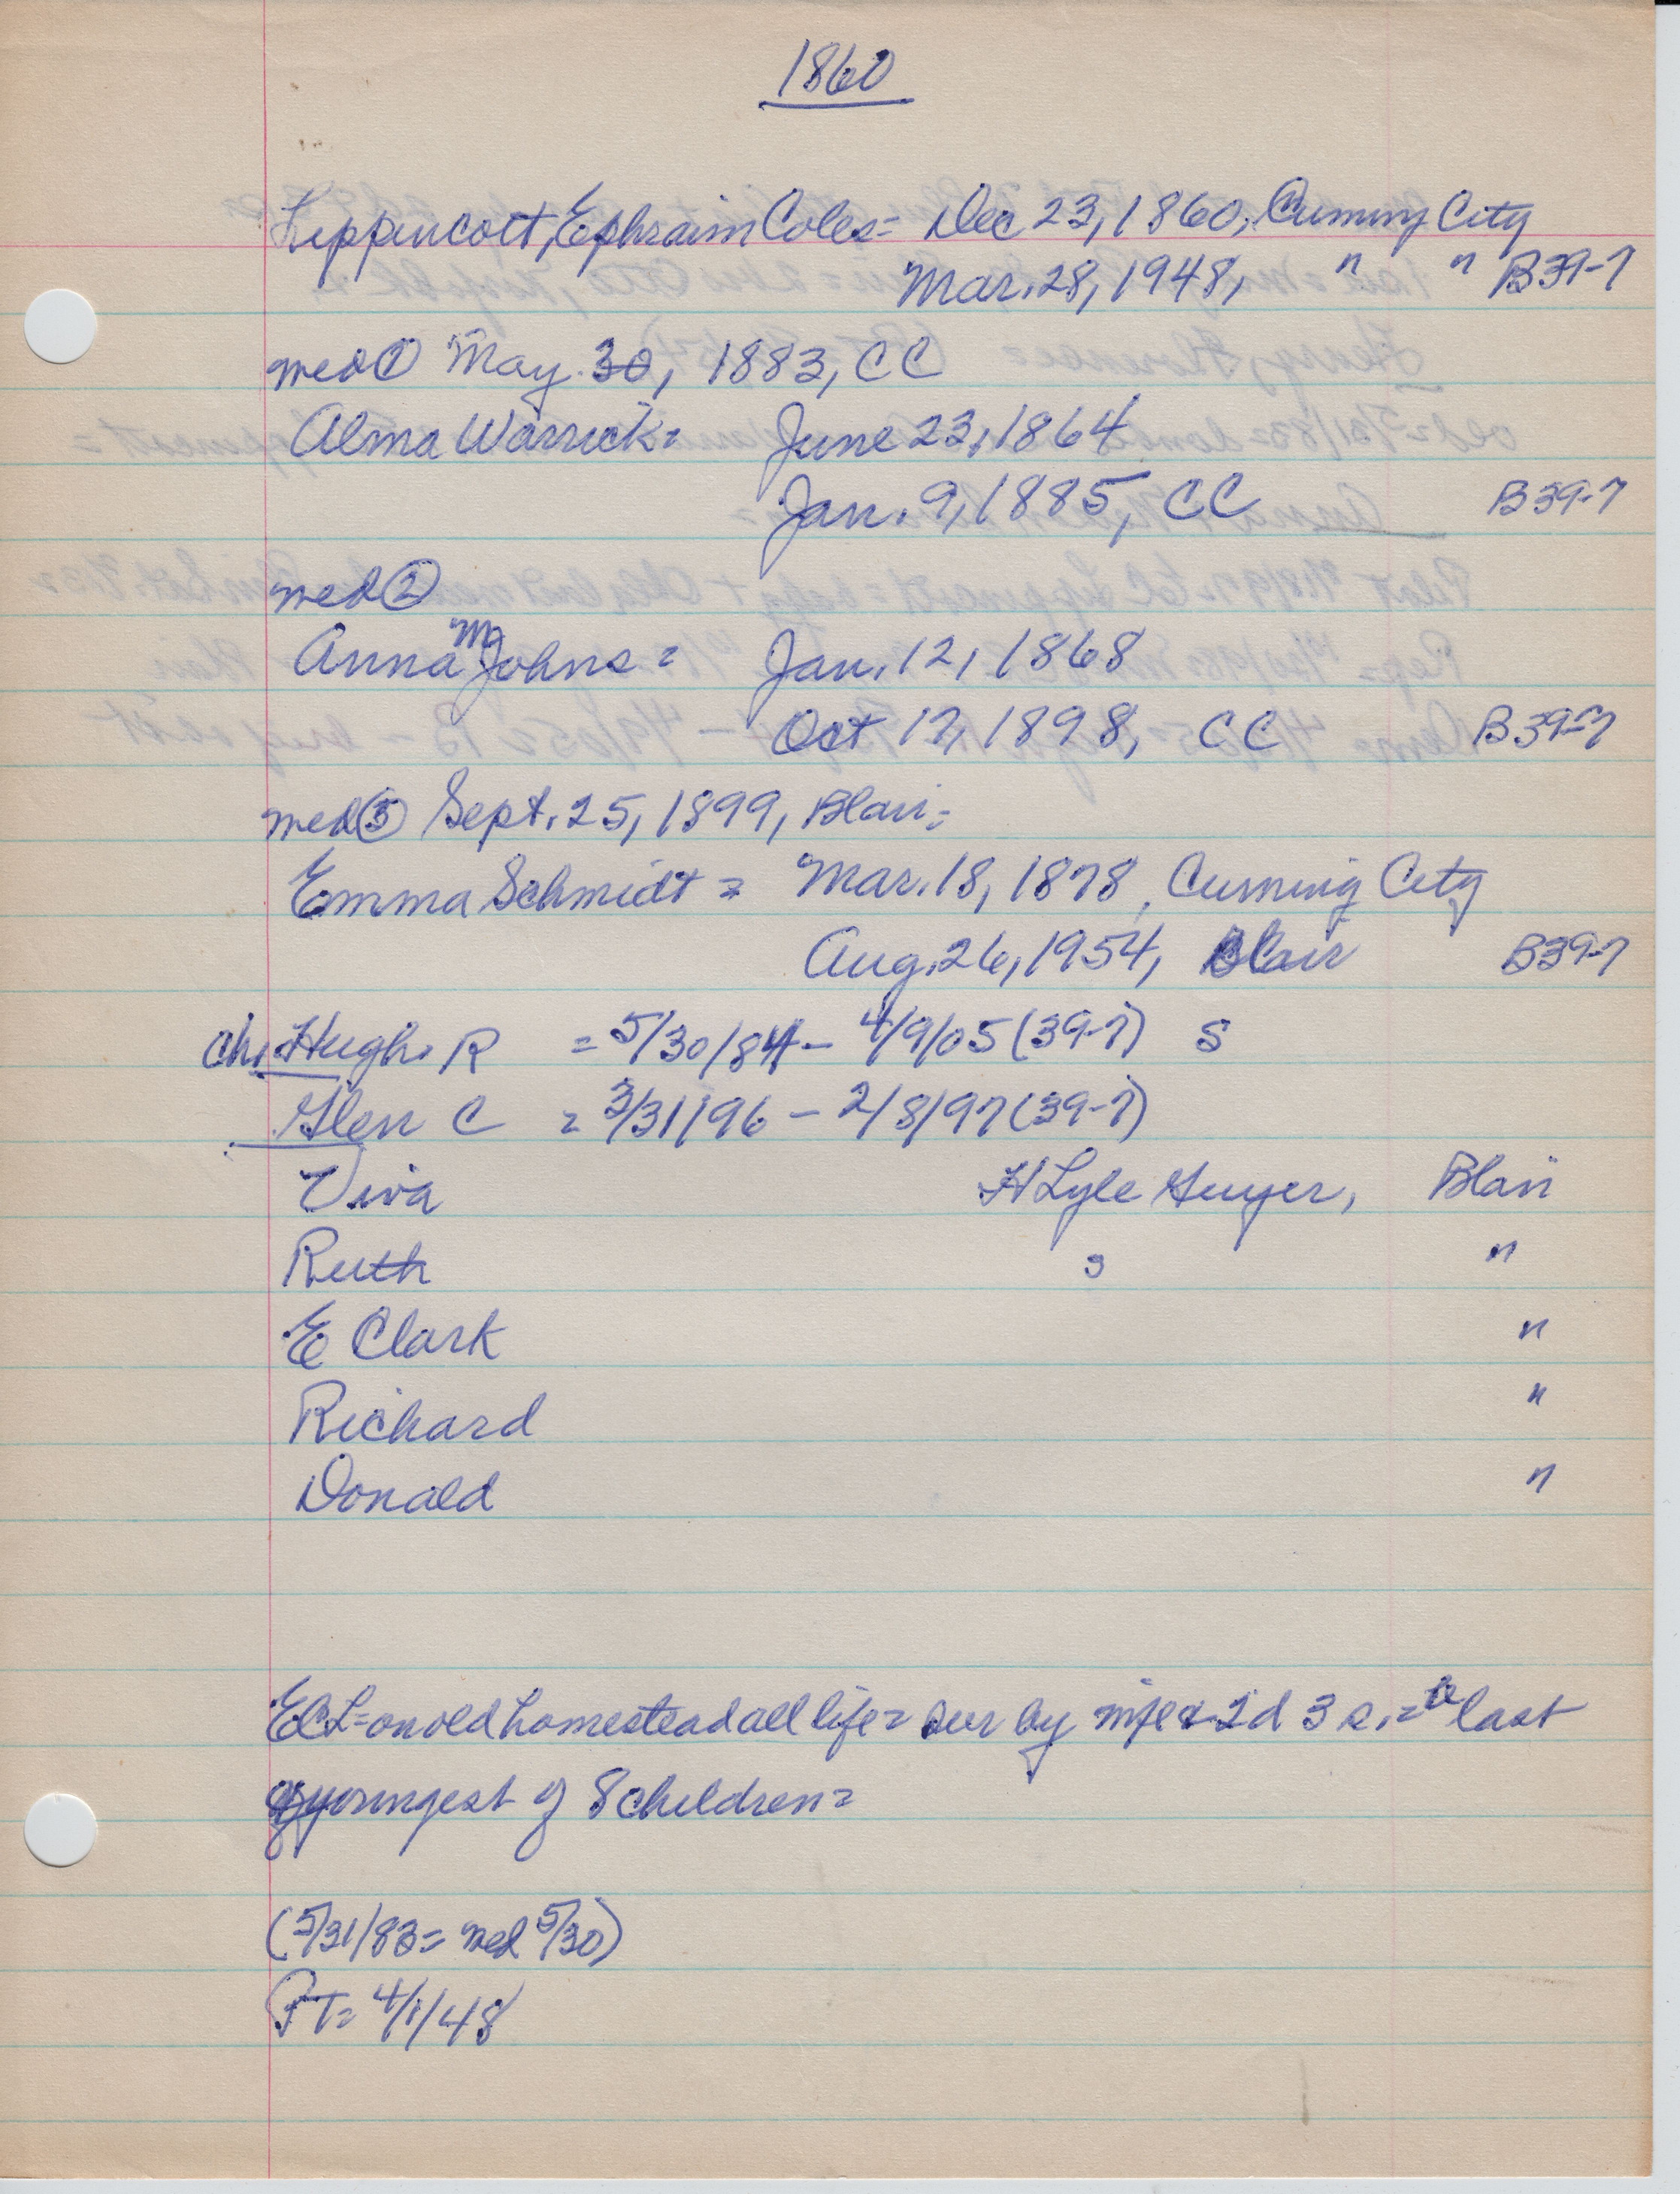 1860
Lippincott, Ephraim Coles = Dec 23, 1860, Cuming City
Mar. 28, 1948, " " B39-7
med ① May 30, 1883, CC
Alma Warrick = June 23, 1864
Jan. 9, 1885, CC B39-7
med ②
Anna M Johns = Jan. 12, 1868
Oct 17, 1898, CC B39-7
med ③ Sept. 25, 1899, Blair =
Emma Schmidt = Mar. 18, 1878, Cuming City
Aug. 26, 1954, Blair B39-7
ch. Hugh R = 5/30/84 - 4/9/05 (39-7) S
Glen C = 3/31/96 - 2/8/97 (39-7)
Viva H Lyle Guyer, Blair
Ruth s "
E Clark "
Richard "
Donald "
ECL = on old homestead all life = sur by wife & 2d 3 s. = last
youngest of 8 children =
(5/31/83 = med 5/30)
PT = 4/1/48